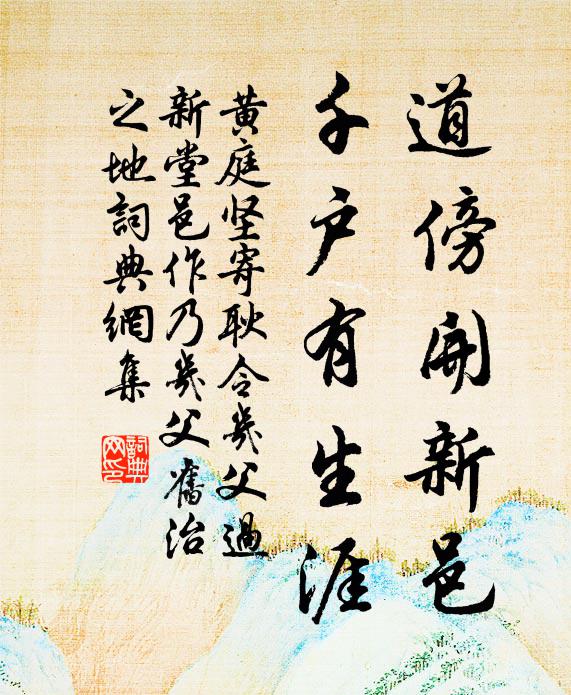 道傍開新邑
千户有生涯
黄庭坚寄耿令幾父過
新堂邑作乃幾父舊治
之地詞典網集
詞典
网印